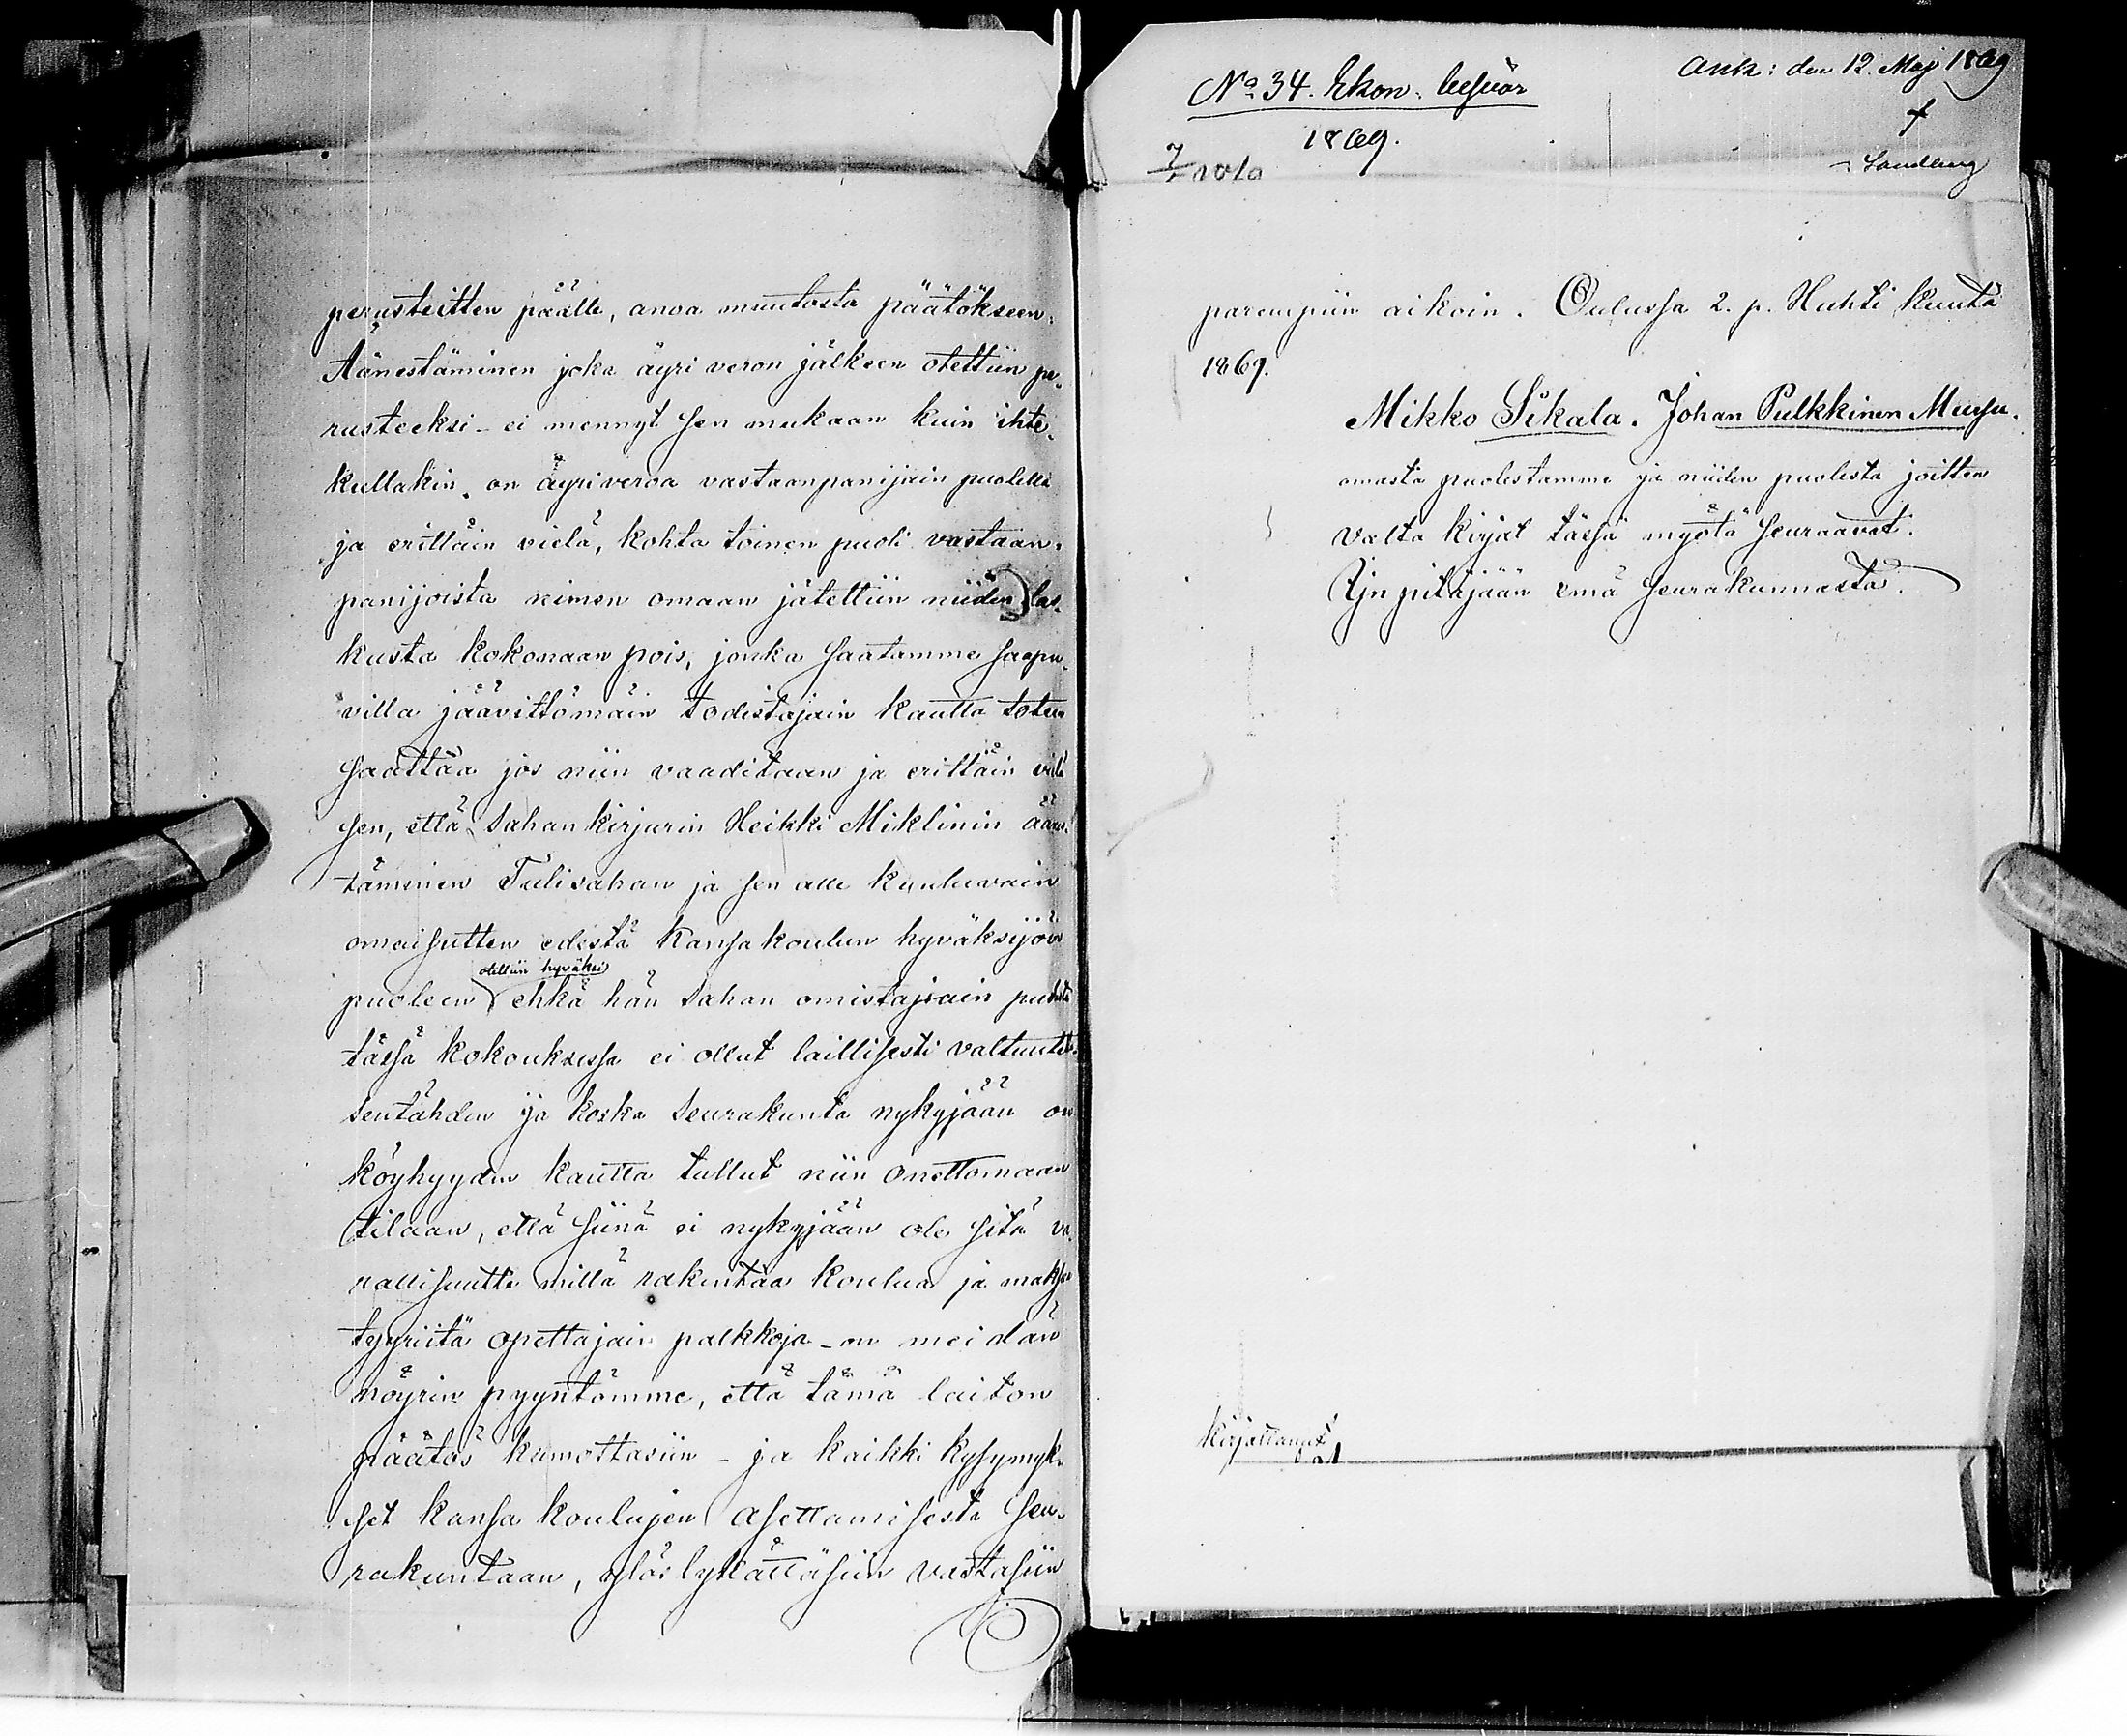 perusteitten päälle, anoa muutosta päätökseen.
Äänestäminen joka äyri veron jälkeen otettiin pe-
rusteeksi - ei mennyt sen mukaan kuin ihte-
kullakin on äyriveroa vastaanpanijain puolella
ja erittäin vielä, kohta toinen puoli vastaan-
panijoista nimen omaan jätettiin niiden las-
kusta kokonaan pois, jonka saatamme saapu-
villa jäävittömäin todistajain kautta toteen
saattaa jos niin vaaditaan ja erittäin vielä
sen, että Sahankirjurin Heikki Miklinin äänes-
täminen Tulisahan ja sen alle kuuluvain
omaisutten edestä kansakoulun hyväksijöin
otettiin hyväksi
puoleen ehkä hän sahan omistajiain puolesta
tässä kokouksessa ei ollut laillisesti valtuutet.
Sentähden ja koska Seurakunta nykyjään on
köyhyyden kautta tullut niin onettomaan
tilaan, että siinä ei nykyjään ole sitä va-
rallisuutta millä rakentaa koulua ja maksaa
tyyriitä opettajain palkkoja - on meidän
nöyrin pyyntömme, että tämä laiton
päätös kumottasiin - ja kaikki kysymyk-
set kansa koulujen asettamisesta Seu-
rakuntaan, ylös lykättäsiin vastasiin
No 34. Ekon. besvär
1869.
Ank: den 12. Maj 1869
Sandberg
parempiin aikoin. Oulussa 2. p. Huhti kuuta
1869.
Mikko Sikala. Johan Pulkkinen
omasta puolestamme ja niiden puolesta joitten
valta kirjat tässä myötä seuraavat.
Ijn pitäjään emä seurakunnasta.
Kirjottanut